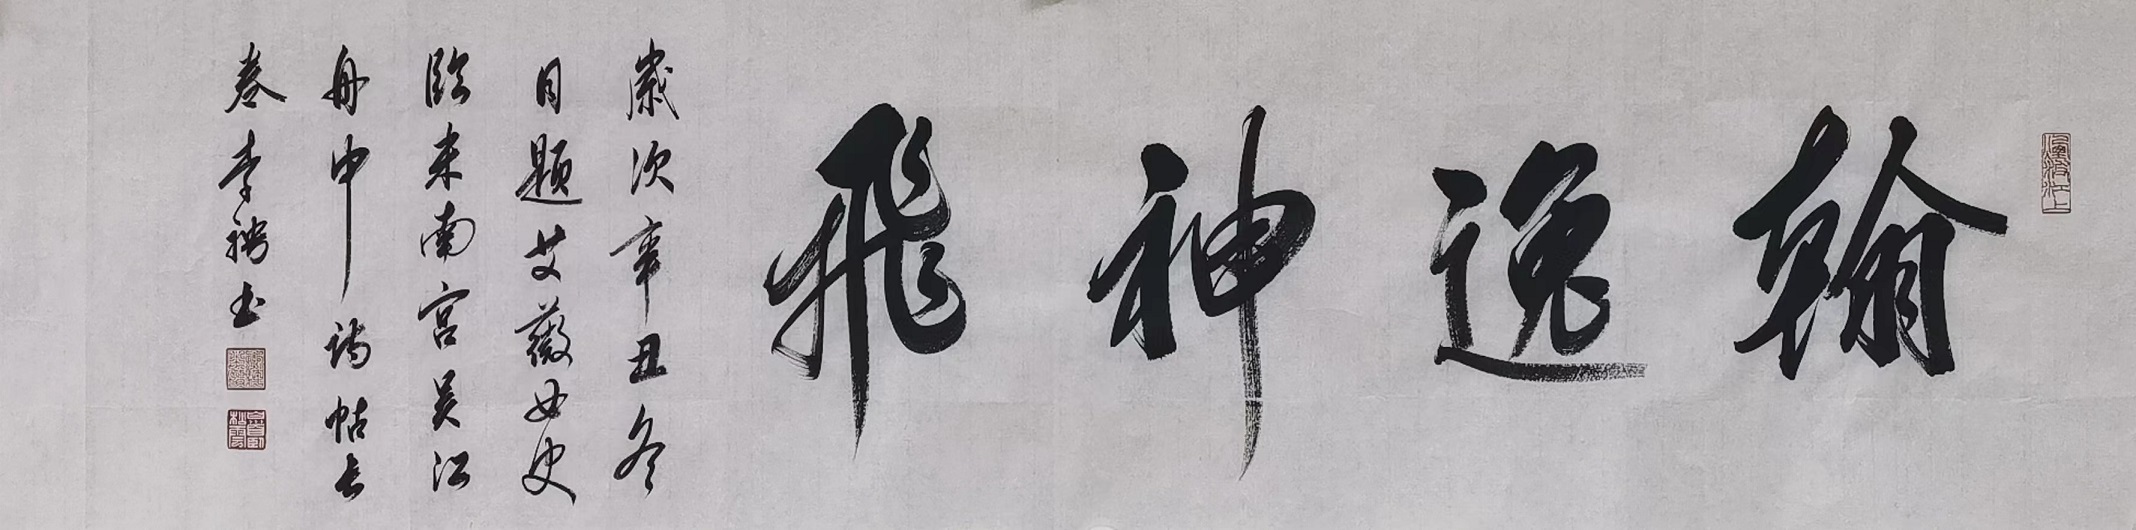 翰逸神飛
歲次辛丑冬
月題艾薇女史
臨米南宮吳江
舟中詩帖長
卷李騁書